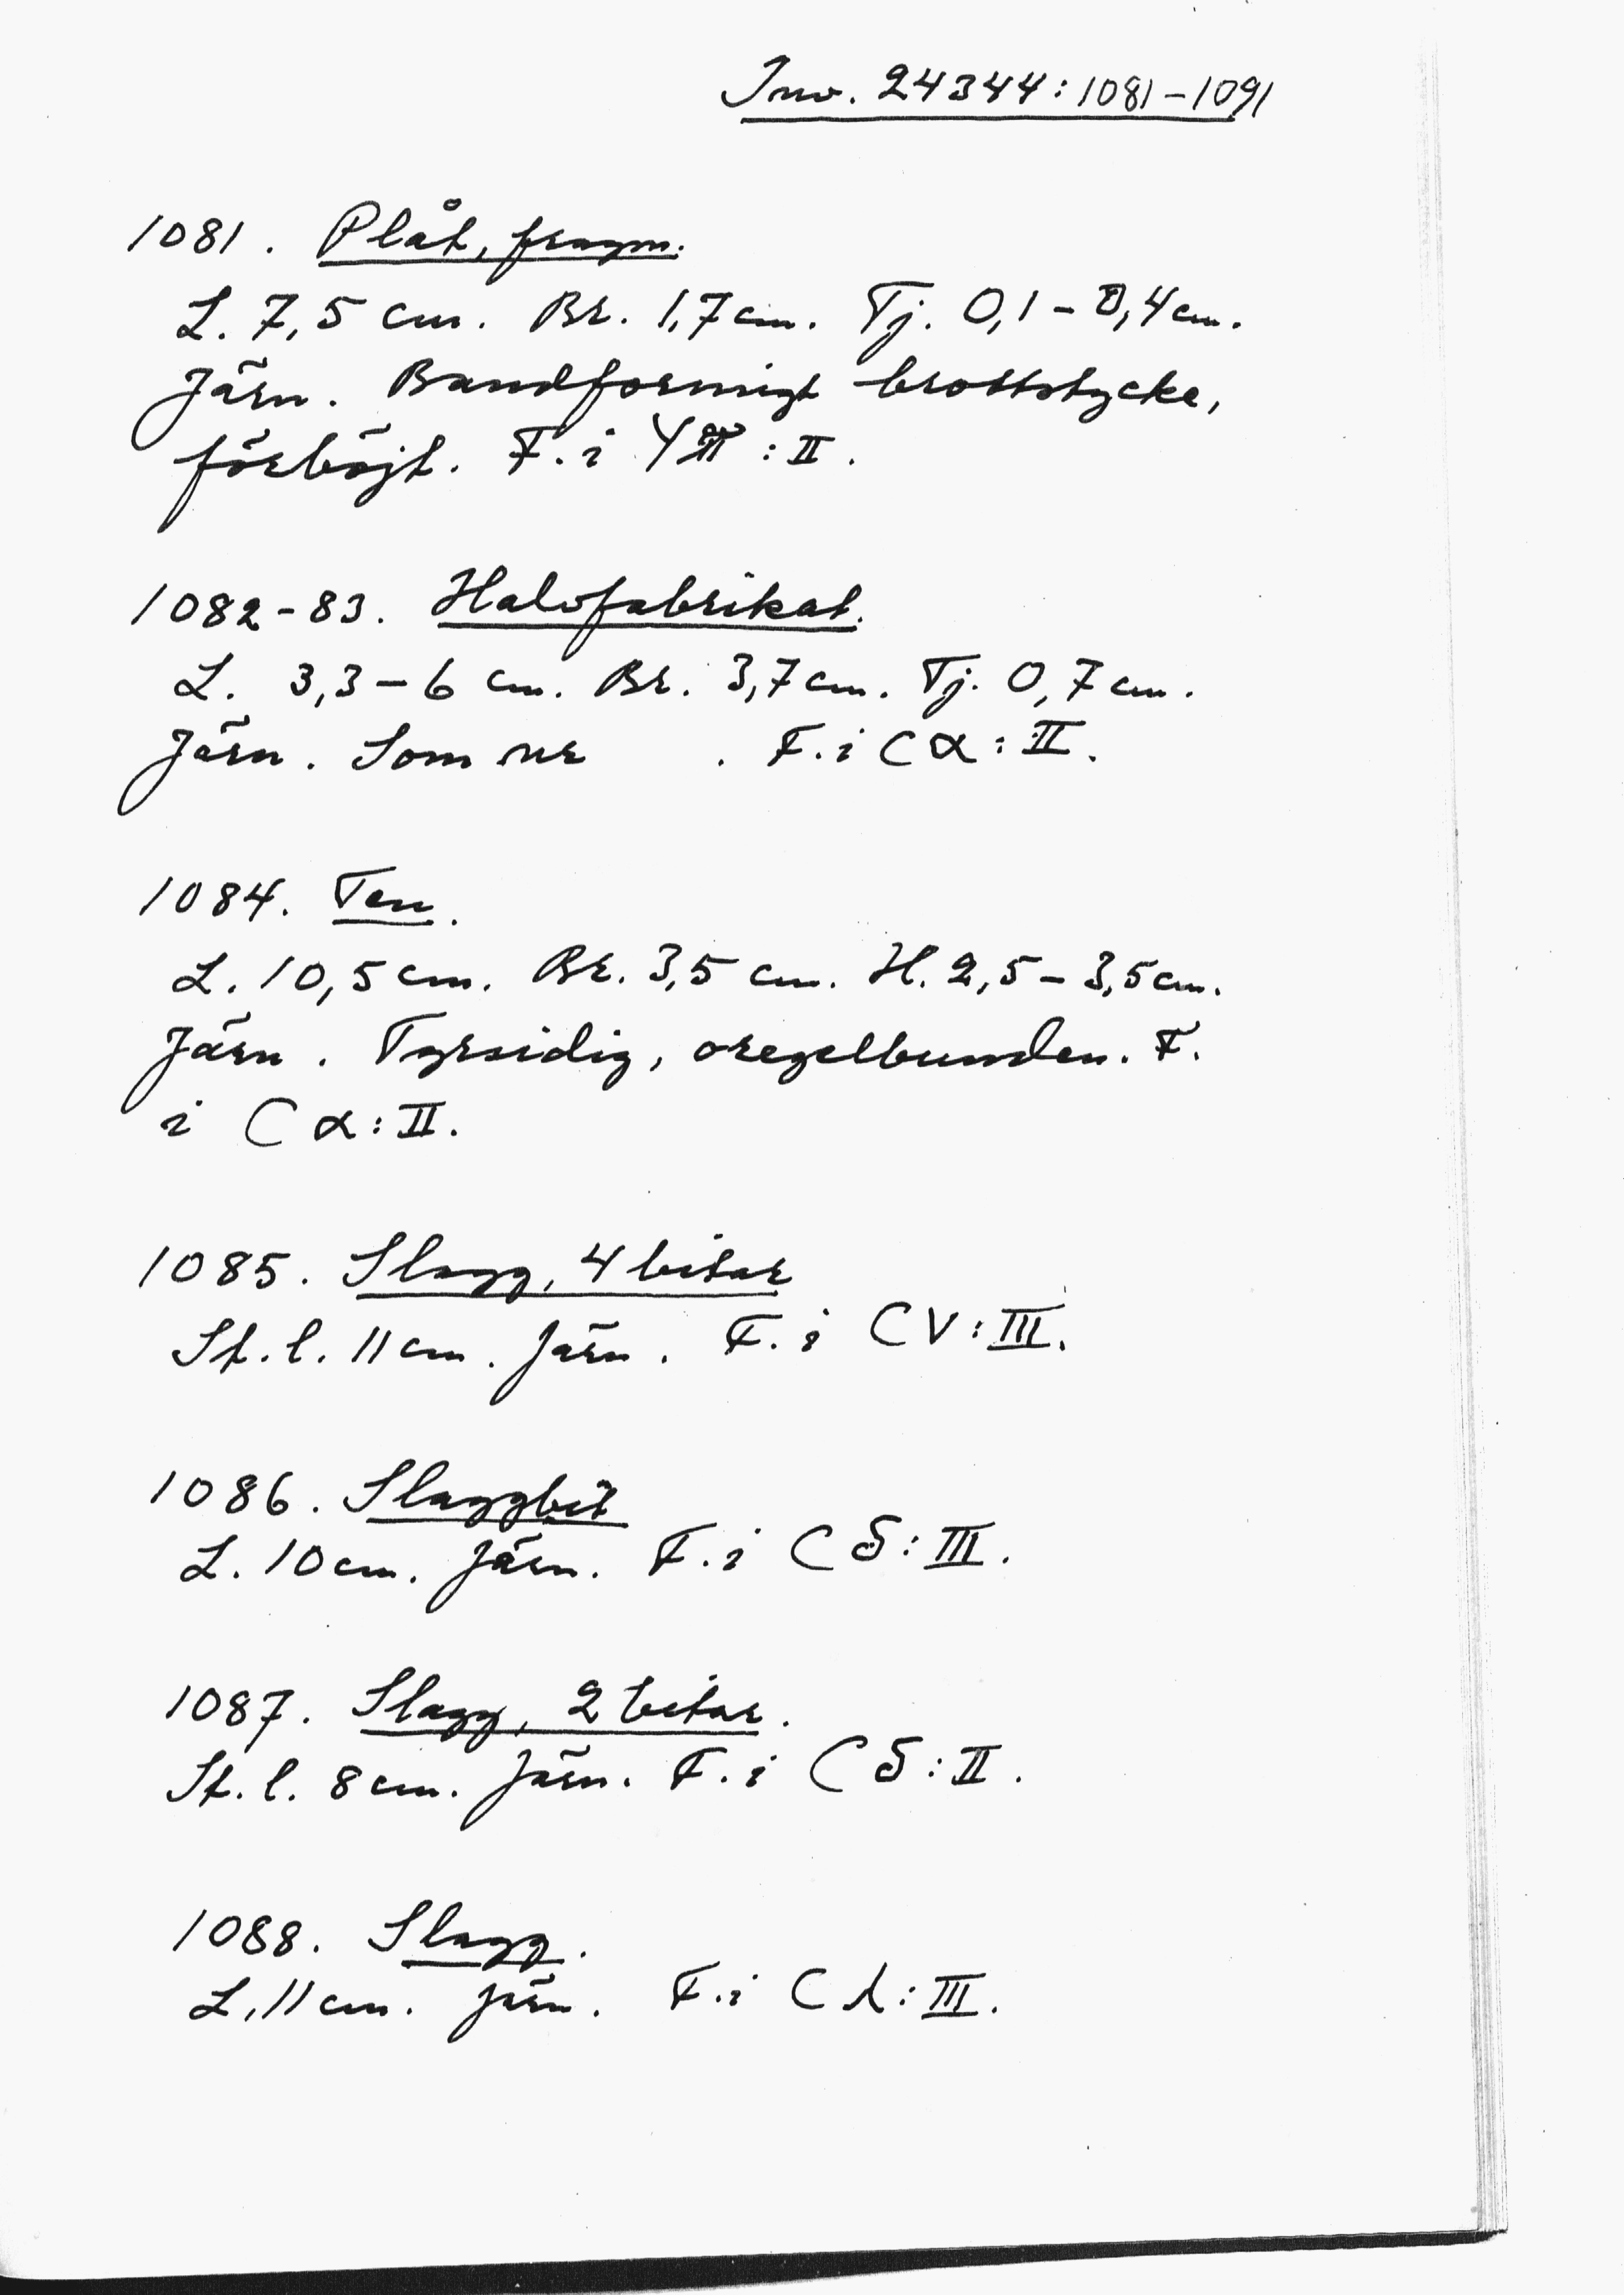 Inv. 24344:1081-1091
1081. Plåt, fragm.
L. 7,5 cm. Br. 1,7 cm. Tj. 0,1-0,4 cm.
Järn. Bandformigt brottstycke,
förböjt. F. i Yπ:II.
1082-83. Halvfabrikat.
L. 3,3-6 cm. Br. 3,7 cm. Tj. 0,7 cm.
Järn. Som nr . F. i Cα:II.
1084. Ten.
L. 10,5 cm. Br. 3,5 cm. H. 2,5-3,5 cm.
Järn. Fyrsidig, oregelbunden. F.
i Cα:II.
1085. Slagg, 4 bitar
St. l. 11 cm. Järn. F. i CV:III.
1086. Slaggbit
L. 10 cm. Järn. F. i Cδ:III.
1087. Slagg, 2 bitar.
St. l. 8 cm. Järn. F. i Cδ:II.
1088. Slagg.
L. 11 cm. Järn. F. i Cλ:III.